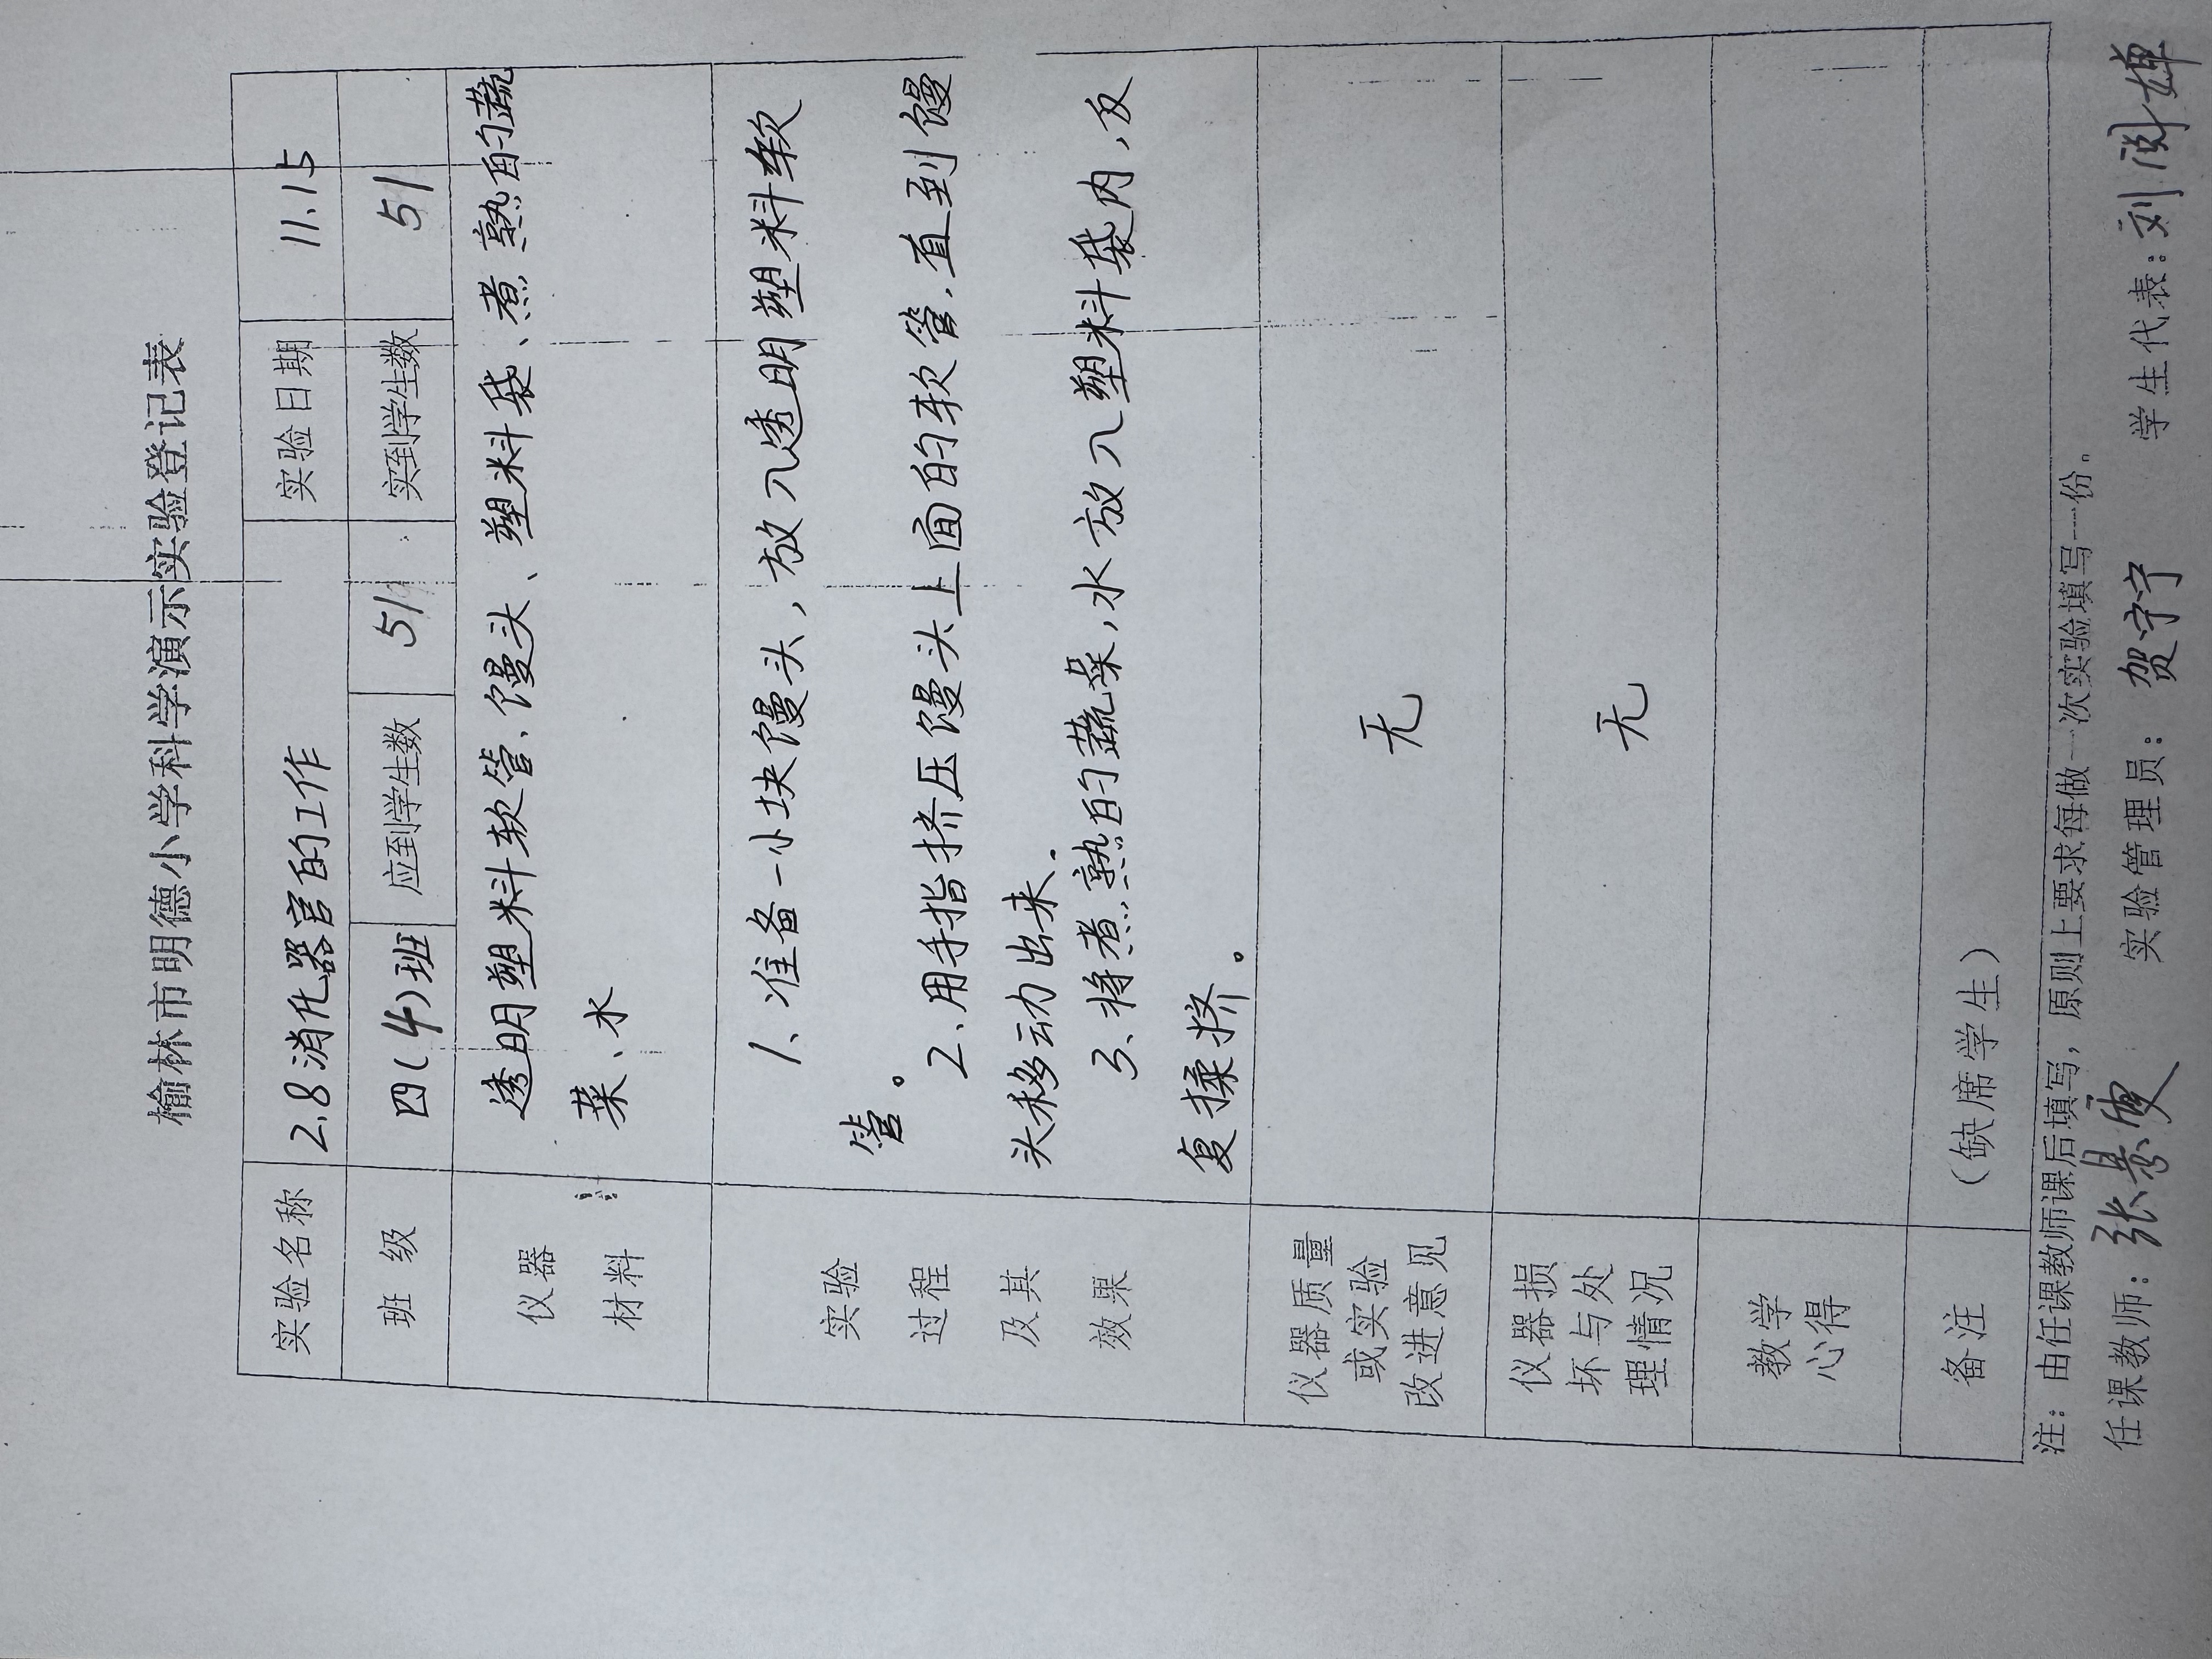 榆林市明德小学科学演示实验登记表
实验名称 2.8消化器官的工作 实验日期 11.15
班 级 四(4)班 应到学生数 51 实到学生数 51
仪器
材料
透明塑料软管、馒头、塑料袋、煮熟的蔬
菜、水
实验
过程
及其
效果
1、准备一小块馒头，放入透明塑料软
管。
2、用手指挤压馒头上面的软管，直到馒
头移动出来。
3、将煮熟的蔬菜，水放入塑料袋内，反
复揉挤。
仪器质量
或实验
改进意见
无
仪器损
坏与处
理情况
无
教学
心得
备注 （缺席学生）
注：由任课教师课后填写，原则上要求每做一次实验填写一份。
任课教师：张 实验管理员：贺宁宁 学生代表：刘